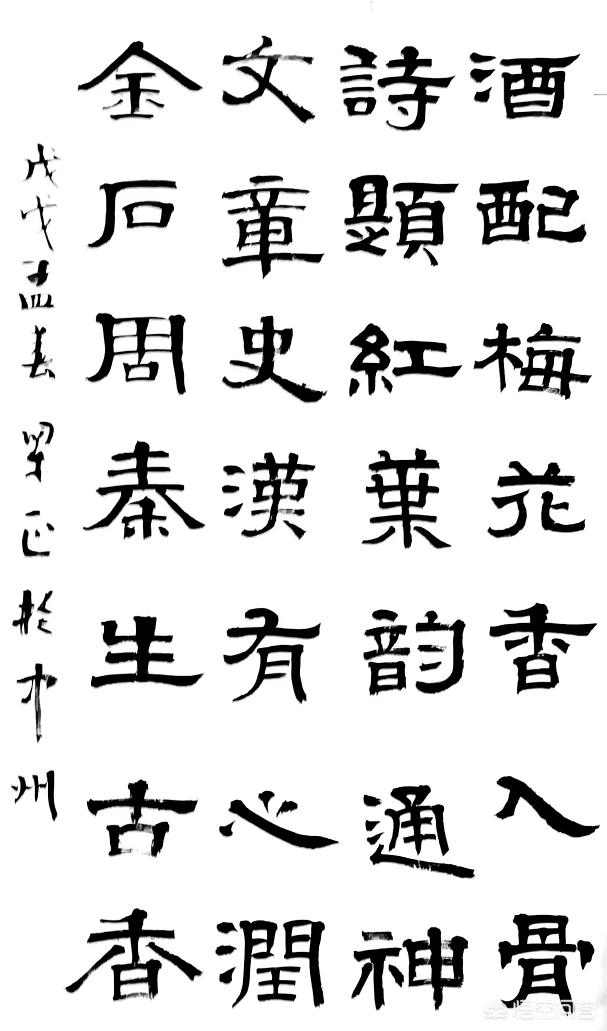 酒配梅花香入骨
詩題紅葉韵通神
文章史漢有心潤
金石周秦生古香
戊戌孟春
正於中州
悟空问答